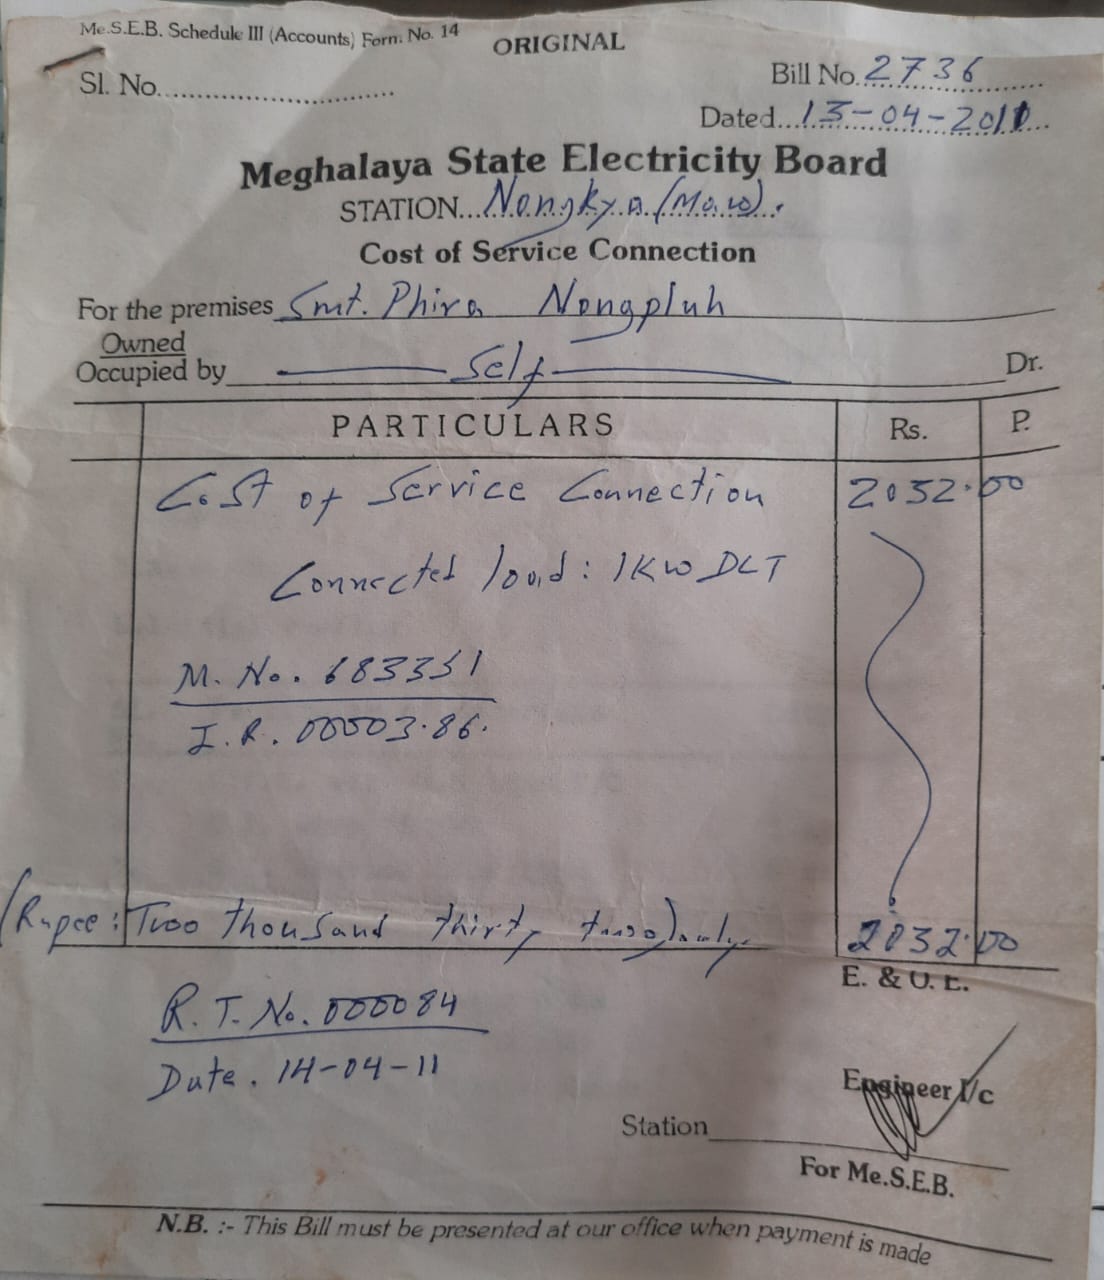 Me.S.E.B. Schedule III (Accounts) Form. No. 14
ORIGINAL
Sl. No.
Bill No. 2736
Dated 13-04-2011
Meghalaya State Electricity Board
STATION Nongkya (Maw).
Cost of Service Connection
For the premises Smt. Phira Nongpluh
Owned
Occupied by Self Dr.
PARTICULARS Rs. P.
Cost of Service Connection 2032.00
Connected load: 1KW DLT
M. No. 683351
I.R. 00003.86.
(Rupee: Two thousand thirty two) only. 2032.00
E. & O. E.
R. T. No. 000084
Date. 14-04-11
Engineer I/c
Station
For Me.S.E.B.
N.B. :- This Bill must be presented at our office when payment is made